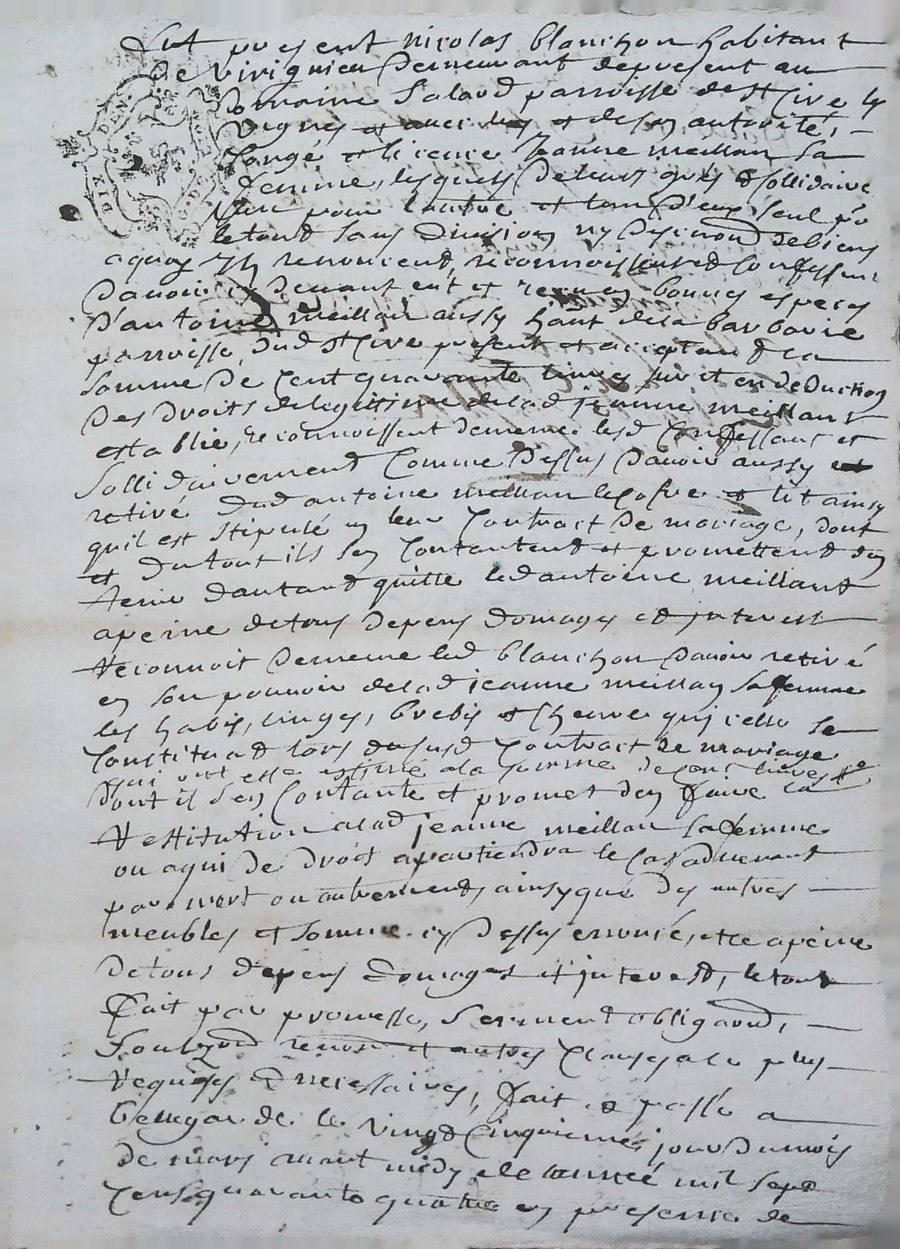 fut present nicolas blanchon habitant
de virignieu demeurant de present au
domaine parroisse de st Cire les
vignes et avec luy et de son autorité,
Congé et licence Jeanne meillan sa
femme, lesquels de leurs grés & sollidaire
l'un pour l'autre et l'un d'eux seul po
le tout sans division ny de biens
a quoy ils renoncent reconnoissent et Confessent
d'avoir cy devant eut et receu en bonnes especes
d'antoine meillan aussy hant de la barbarie
parroisse dud st Cire present et acceptant la
somme de Cent quarante livres soit en deduction
des droits de legitime de lad jeanne meillant
establie, reconnoissent de meme lesd Confessant et
sollidairement Comme dessus d'avoir aussy
retiré dud antoine meillan le cofre et lit ainsy
quil est stipulé en leur Contract de mariage, dont
et du tout ils sen Contantent et promettent den
tenir d'autand quitte led antoine meillant
apeine de tous depens domages et interest
Reconnoit de meme led blanchon d'avoir retiré
en son pouvoir de lad jeanne meillan sa femme
les habis, linges, brebis et chevre qu'icelle se
Constitua lors du susd Contract de mariage
qui ont esté estimé a la somme de cent livres
dont il s'en Contante et promet d'en faire la
Restitution a lad jeanne meillan sa femme
ou a qui de droit apartiendra le Cas advenant
par mort ou autrement ainsy que des autres
meubles et somme cy dessus, apeine
de tous depens domages et interest, le tout
fait par promesse, serment obligaon,
renon et autres Clauses a ce plus
Requises & necessaires, fait & passé a
bellegarde le vingt Cinquieme jour du mois
de mars avant midy de l'année mil sept
Cens quarante quatre en presence de
DIX DEN.